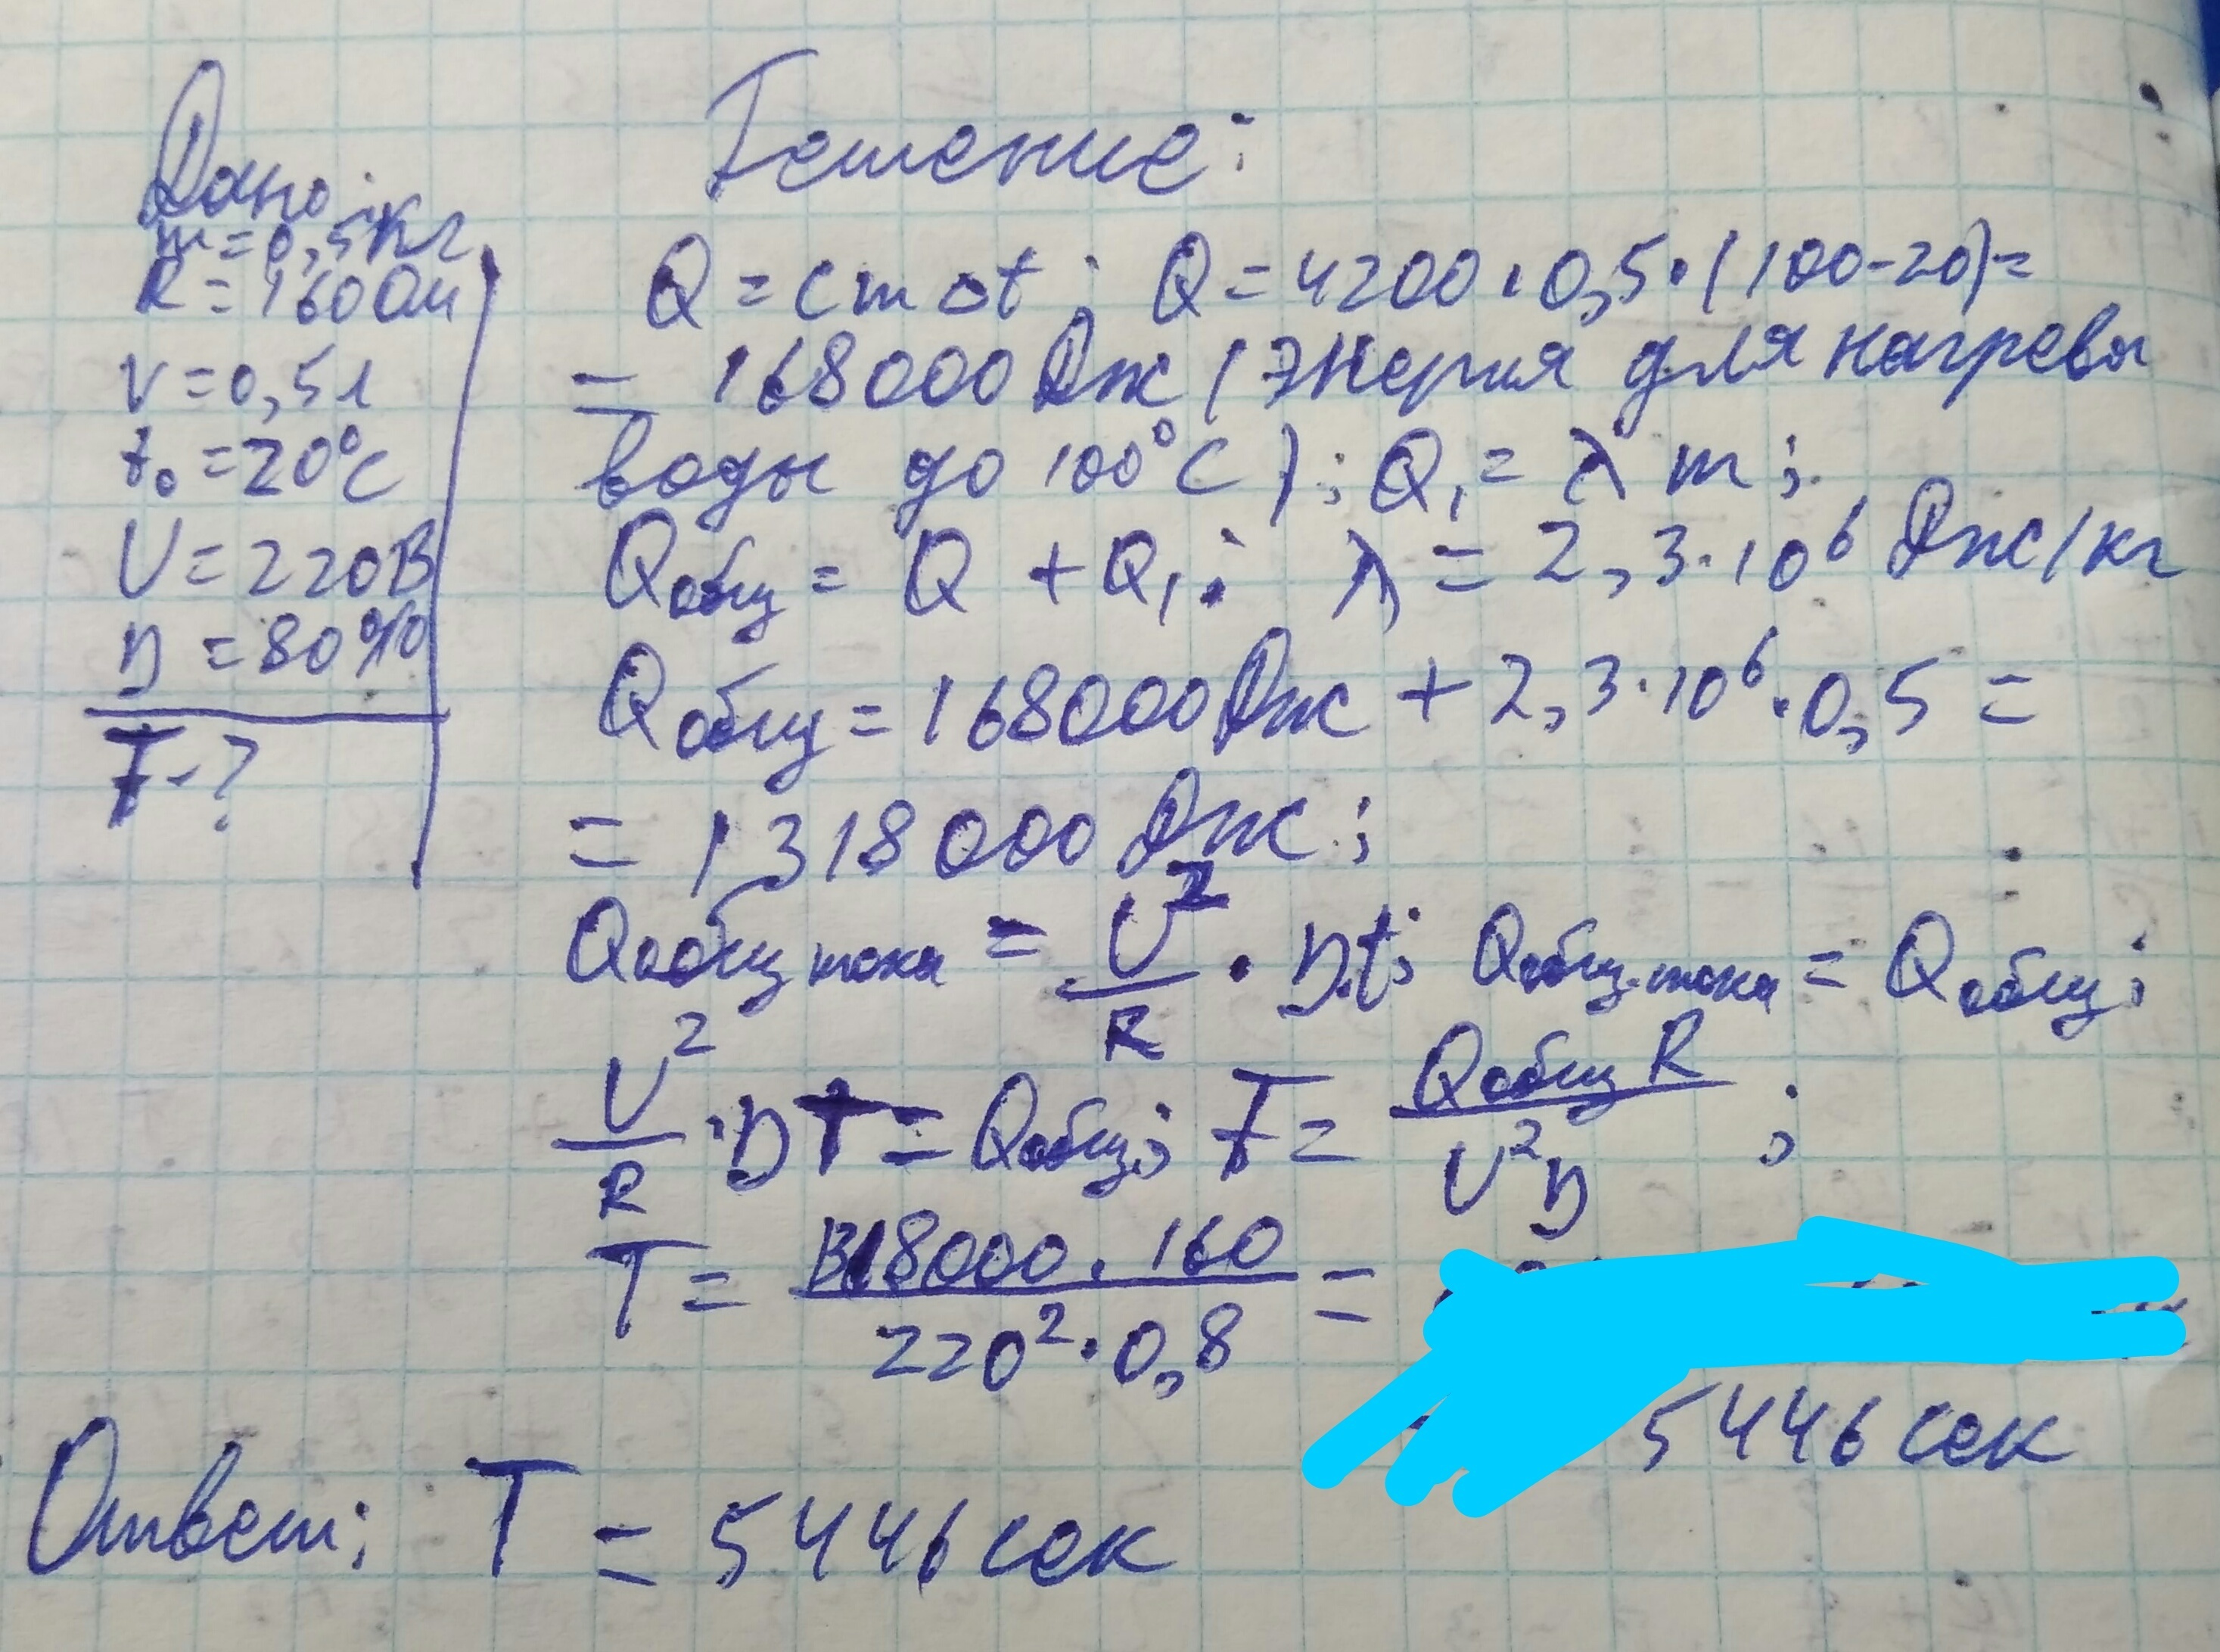 Дано:
m = 0,5 кг
R = 160 Ом
V = 0,5 л
t₀ = 20°C
U = 220В
η = 80%
T - ?
Решение:
Q = cmΔt; Q = 4200 · 0,5 · (100-20) =
= 168000 Дж (Энергия для нагрева
воды до 100°C); Q₁ = λ m;
Qобщ = Q + Q₁; λ = 2,3·10⁶ Дж/кг
Qобщ = 168000 Дж + 2,3·10⁶·0,5 =
= 1318000 Дж;
Qобщ тока = U²/R · η·t; Qобщ.тока = Qобщ;
U²/R · η T = Qобщ; T = Qобщ R / U² η ;
T = 1318000 · 160 / 220² · 0,8 =
5446 сек
Ответ: T = 5446 сек